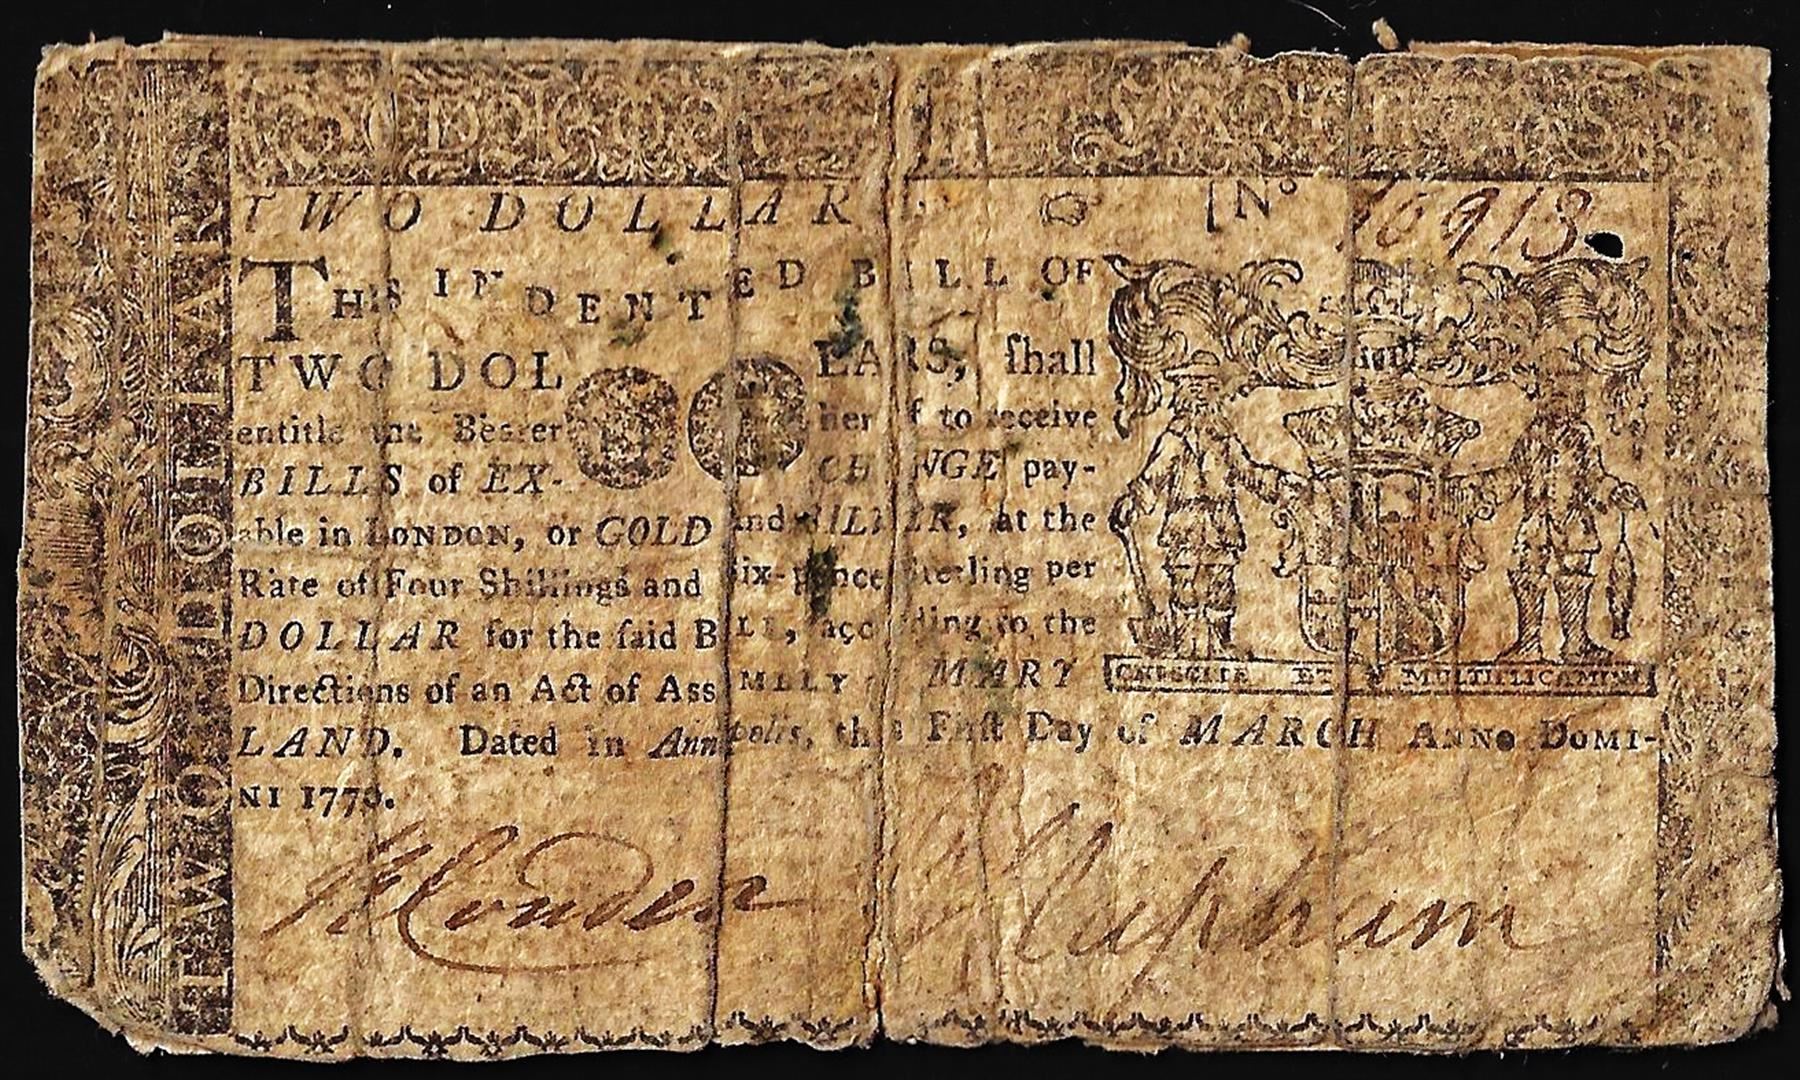 TWO DOLLAR
TWO DOLLAR ☞ [No 10913
THIS INDENTED BILL OF
TWO DOL LARS, ſhall
entitle the Bearer hereof to receive
BILLS of EX- CHANGE pay-
able in LONDON, or GOLD and SILVER, at the
Rate of Four Shillings and Six-pence Sterling per
DOLLAR for the ſaid BILL, according to the
Directions of an Act of ASSEMBLY of MARY
LAND. Dated in Annapolis, this Firſt Day of MARCH ANNO DOMI-
NI 1770.
CRESCITE ET MULTIPLICAMINI
Clapham